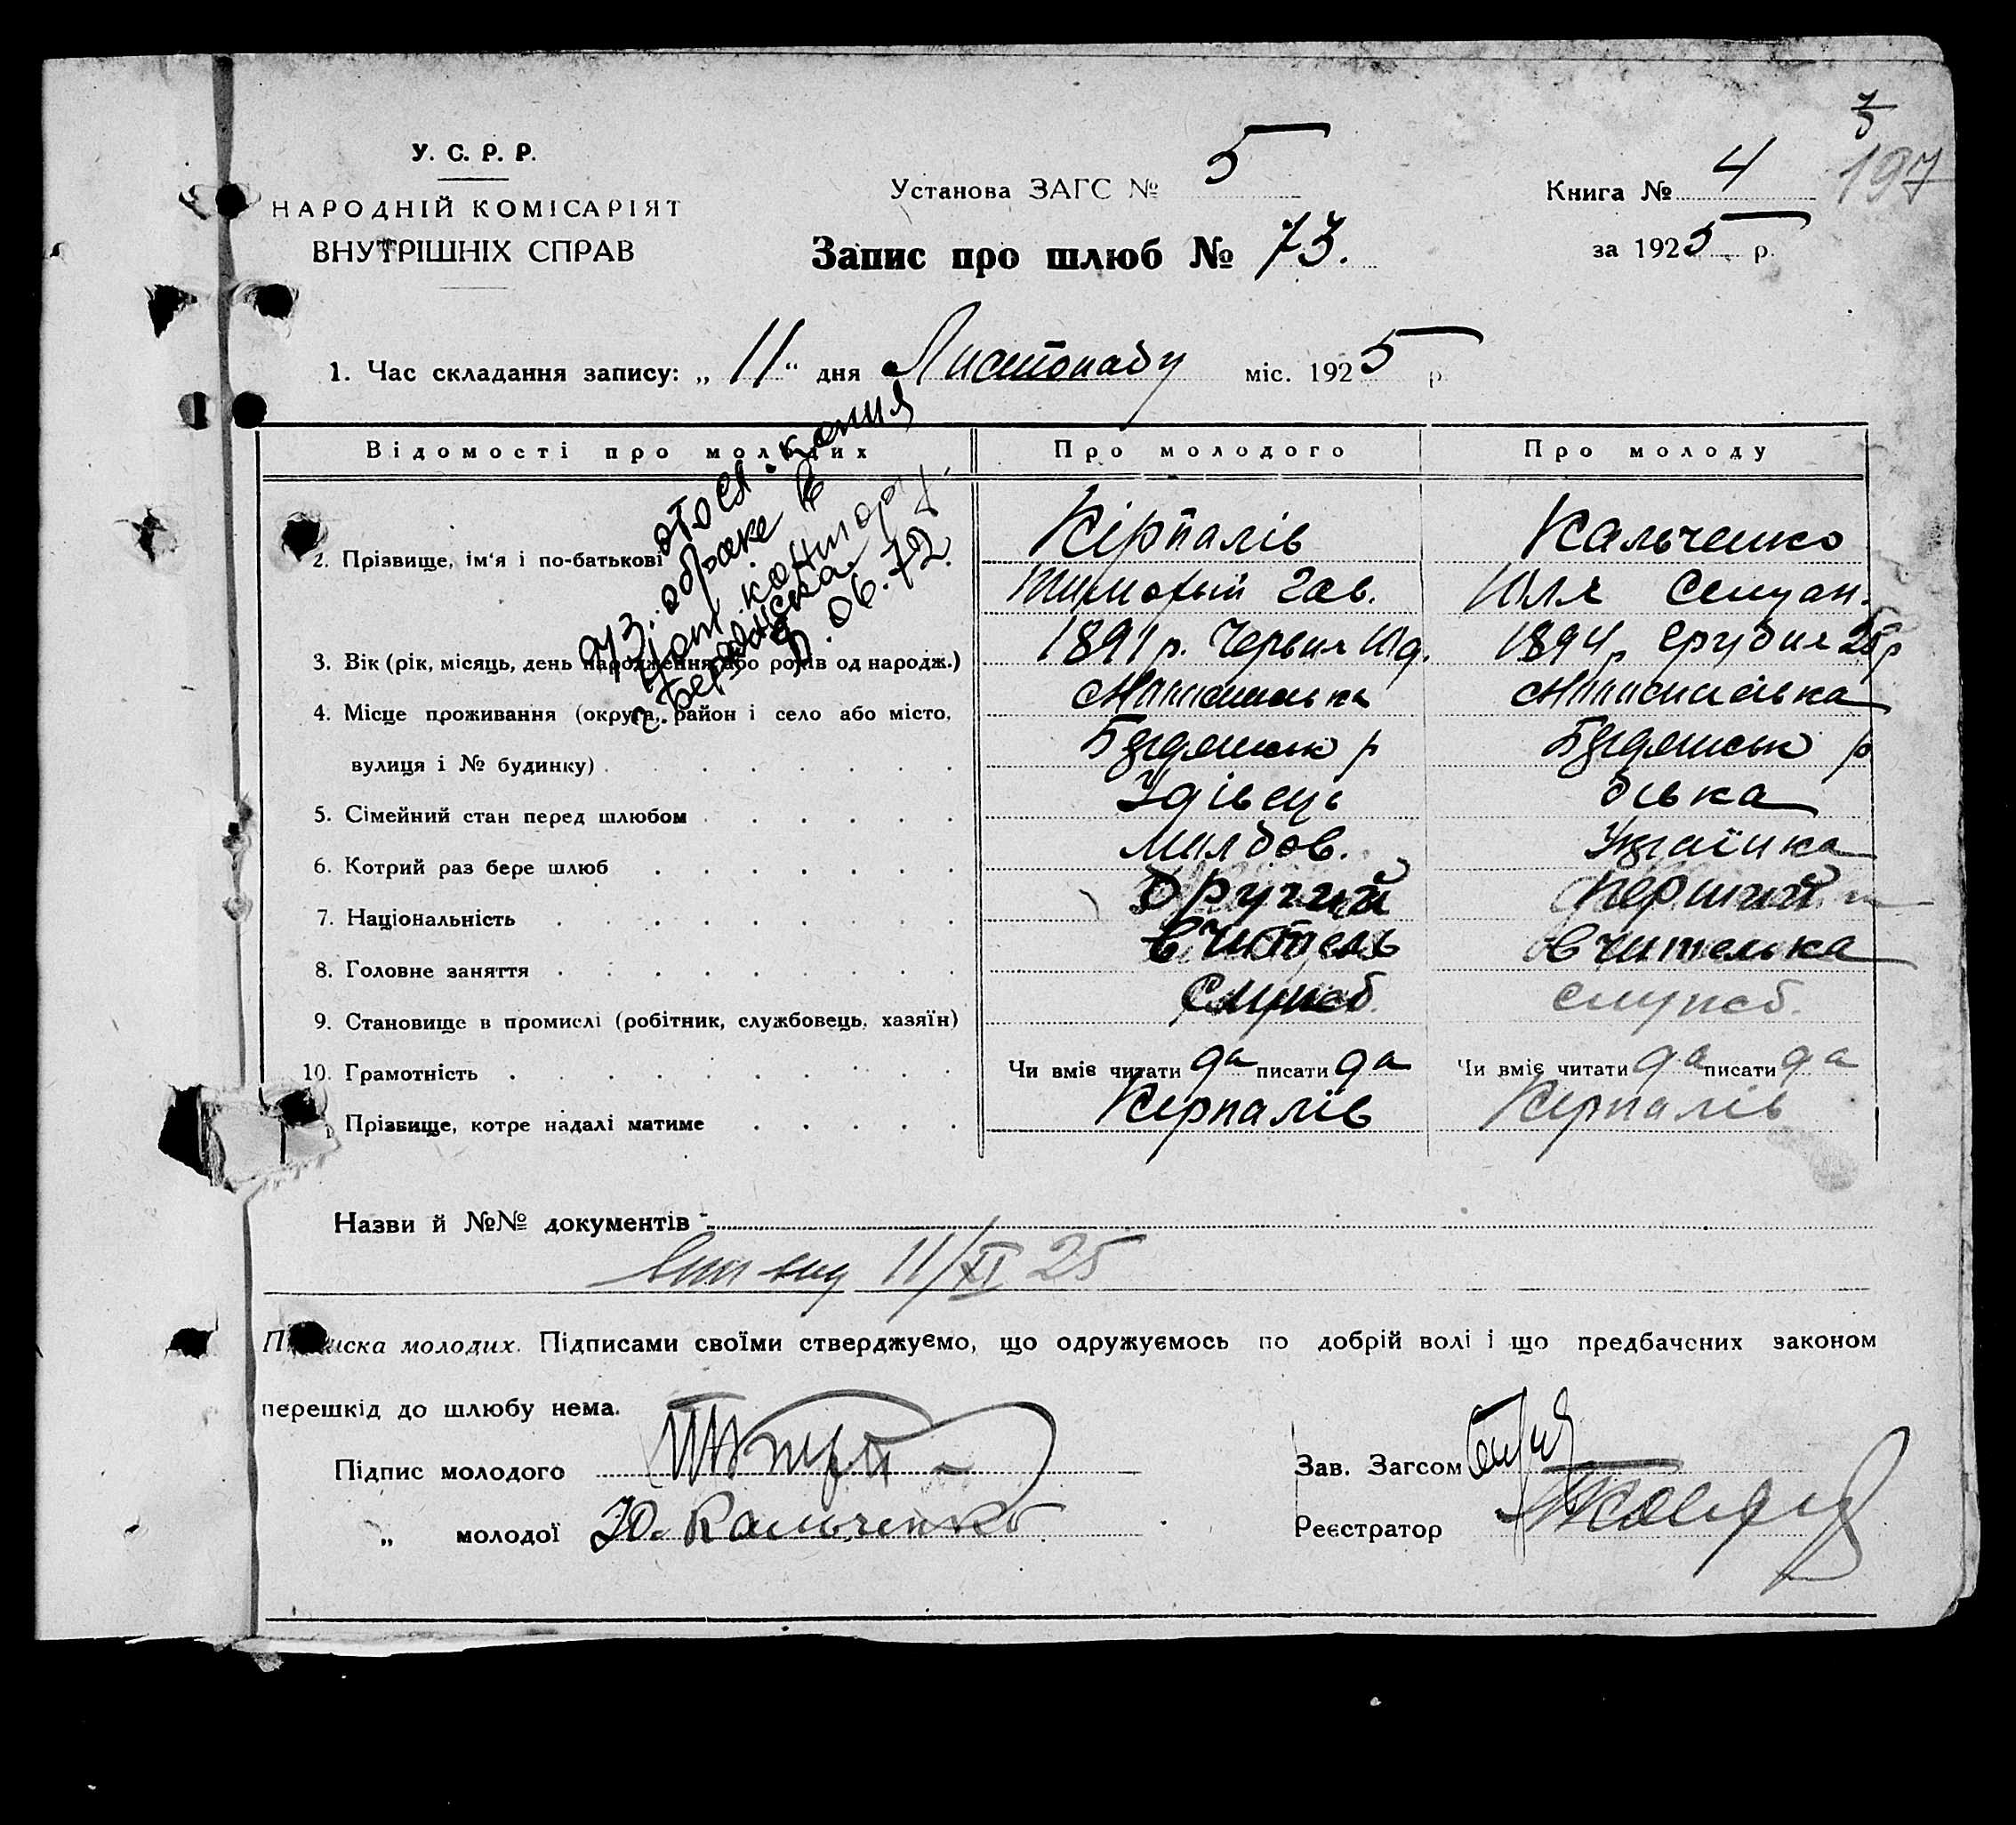 У. С. Р. Р.
НАРОДНІЙ КОМІСАРІЯТ
ВНУТРІШНІХ СПРАВ
Установа ЗАГС № 5
Запис про шлюб № 73.
Книга № 4
197
за 1925 р.
1. Час складання запису: „11“ дня Листопаду міс. 1925 р.
Відомості про молодих Про молодого Про молоду
2. Прізвище, ім'я і по-батькові Кірпалів Кальченко
Тимофий Гав. Юля Семуан.
3. Вік (рік, місяць, день народження або років од народж.) 1891 р. Червня 1894 р Грудня 25
4. Місце проживання (округа, район і село або місто,
вулиця і № будинку)
5. Сімейний стан перед шлюбом Удівець дівка
6. Котрий раз бере шлюб Молдов. Українка
7. Національність Другий Перший
8. Головне заняття вчитель вчителька
9. Становище в промислі (робітник, службовець, хазяїн) служб. служб.
10. Грамотність Чи вміє читати да писати да Чи вміє читати да писати да
Прізвище, котре надалі матиме Кірпалів Кірпалів
отосл. копия
о браке в
г. Бердянска
06.72.
Назви й №№ документів
11/XI 25
Підписка молодих. Підписами своїми стверджуємо, що одружуємось по добрій волі і що предбачених законом
перешкід до шлюбу нема.
Підпис молодого
Зав. Загсом
„ молодої Ю. Кальченко
Реєстратор